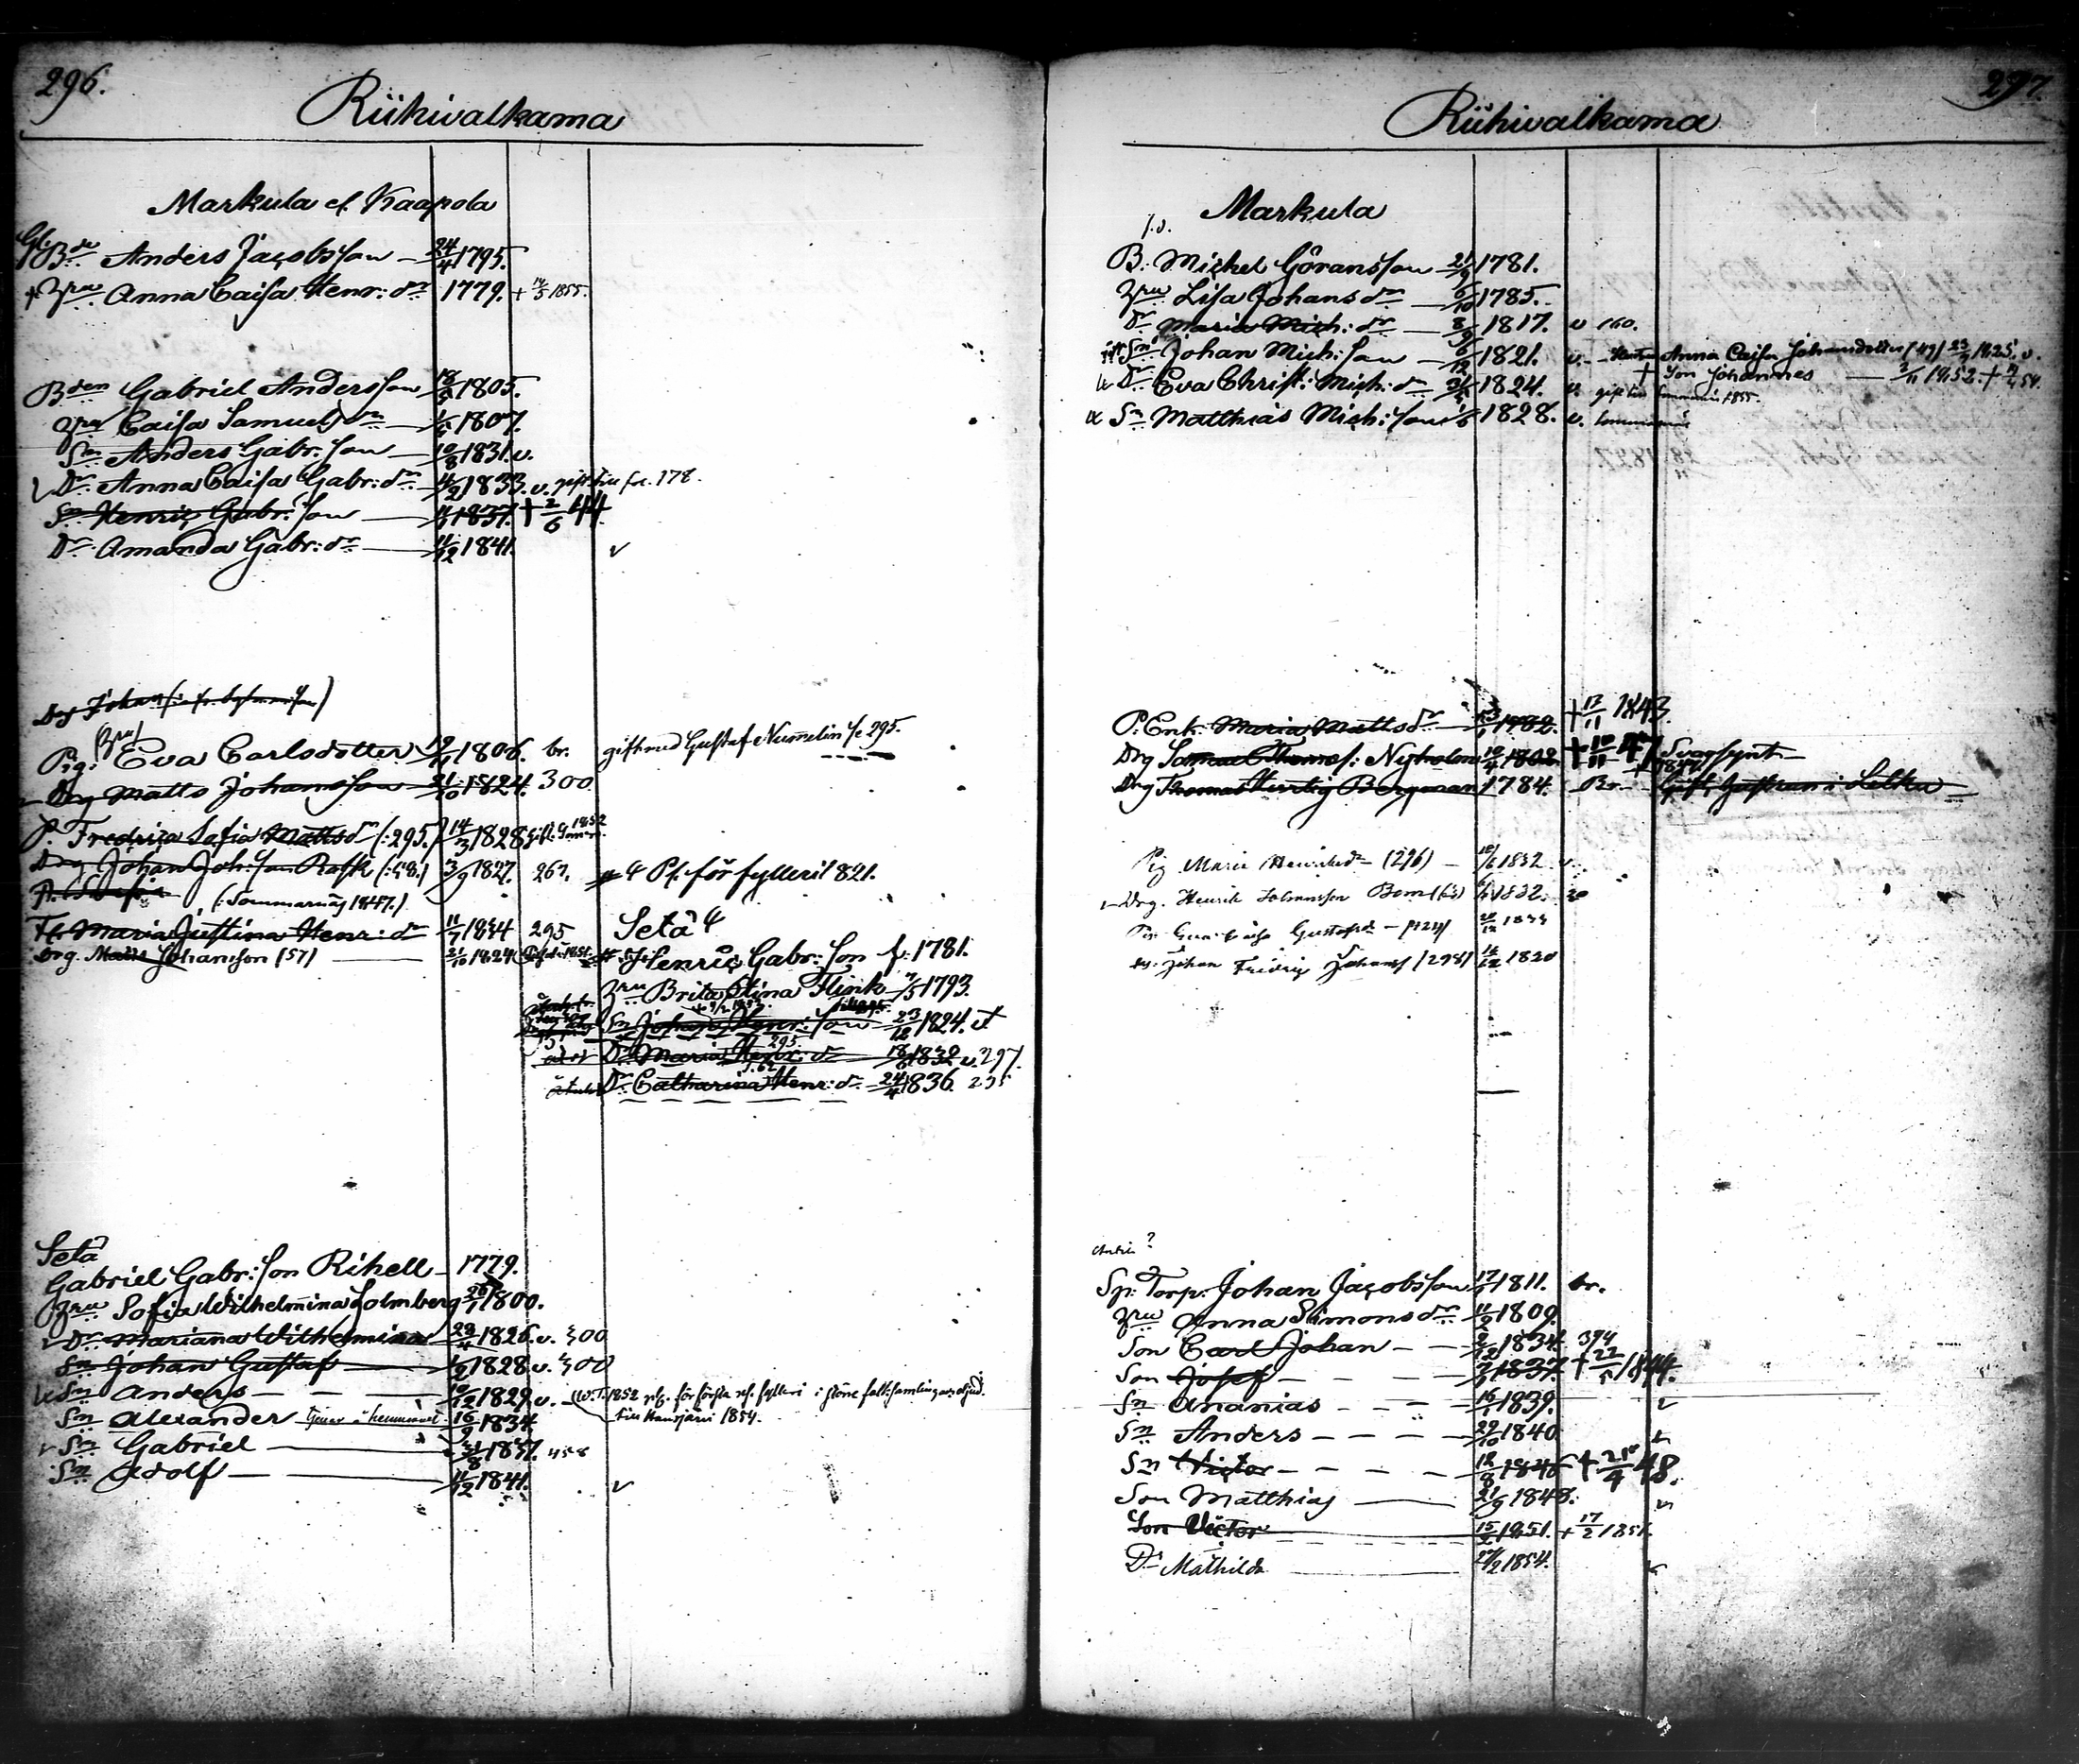 296.
Riihivalkama
Markula el. Kaapola
Gl. Bde Anders Jacobsson 24/4 1795.
+ Hru Anna Caisa Henr: dr 1779. + 14/5 1855.
Bden Gabriel Andersson 18/ 1805.
Hru Caisa Samuels dr 1807.
Sn Anders Gabr: son 10/8 1831. v.
Dr Anna Caisa Gabr: dr 4/2 1833. v. gift till fol. 178.
Sn Henric Gabr: son 1837. + 2/6 44.
Dr Amanda Gabr: dr 11/12 1841. v
Drg Johan
Pig: Eva Carlsdotter 19/ 1806. br. gift med Gustaf Nummelin s/e 295.
Drg Matts Johansson 21/10 1824. 300
P. Fredrica Sofia Mattsdr (:295.) 14/3 1828 gift 1852
Drg Johan Joh: son Rask (:58.) 3/9 1827. 267. 4 Pf. för fylleri 1821.
(: Sommarnäs 1847.)
Fl. Maria Justina Henr: dr 11/7 1834 295
Drg. Matts Johansson (57) 21/10 1824
Setä
Henric Gabr: son f. 1781.
Hru Brita Stina Flink 7/5 1793.
Sn Johan Henr: son 23/12 1824. v
Dr Maria Henr: dr 18/ 1832 v. 297. 295
Dr Catharina Henr: dr 24/4 1836. 295
Setä
Gabriel Gabr: son Rihell 1779.
Hru Sofia Wilhelmina Holmberg 26/1 1800.
Dr Mariana Wilhelmina 23/ 1826. v. 300
Sn Johan Gustaf 1828. v. 300
Sn Anders 10/12 1829. v. W.T. 1852 för första fylleri
till Hausjärvi 1854.
Sn Alexander 16/9 1834.
Sn Gabriel 31/8 1837. 458
Sn Adolf 11/12 1841. v
297.
Riihivalkama
Markula
B. Michel Göransson 21/9 1781.
Hru Lisa Johans dr 6/10 1785.
Dr Maria Mich: dr 8/9 1817. v 160.
Sn Johan Mich: son 6/12 1821. v. Hustru Anna Caisa Johansdotter (49) 23/ 1825. v.
+ Son Johannes 2/11 1852. + 54.
Dr Eva Christ: Mich: dr 1824. v. gift
Sn Matthias Mich: son 1828. v.
P. Enk. Maria Matts dr 1782. + 13/11 1843.
Drg Samuel Thomas: Nyholm 10/4 1802 + 10/11 47 Svagsynt
Drg Thomas Bergman 1784. Br.
Pig Maria Henriksdr (296) 18/6 1832 v.
Drg. Henrik Johansson Bom 1832.
Pig Gustafsdr 1833
Dr. Johan Fredric Johans (298) 1820
Sp: Torp: Johan Jacobsson 17/ 1811. br.
Hru Anna Simons dr 11/2 1809.
Son Carl Johan 2/12 1834. 394
Son Josef 1837. + 22/5 1844.
Sn Ananias 16/ 1839. v
Sn Anders 29/10 1840 v
Sn Victor 12/8 1846 + 21/4 48.
Son Matthias 21/9 1848. v
Son Victor 15/2 1851. + 17/2 1851.
Dr Mathilda 27/2 1854. v